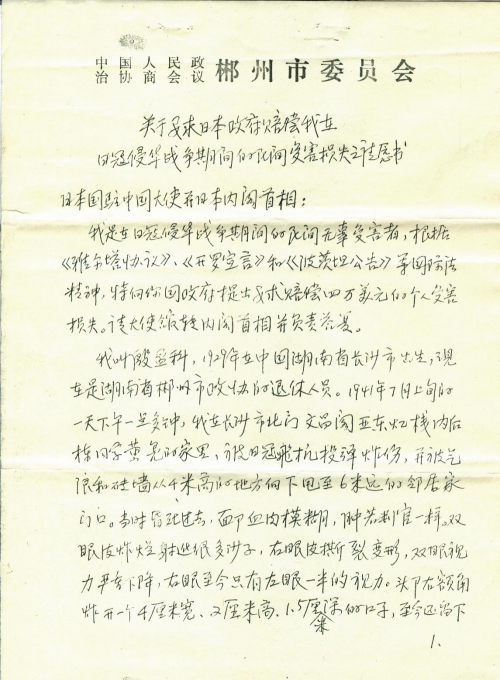 中国人民政
治协商会议 郴州市委员会
关于要求日本政府赔偿我在
日寇侵华战争期间的民间受害损失之请愿书
日本国驻中国大使并日本内阁首相：
我是在日寇侵华战争期间的民间无辜受害者，根据
《雅尔塔协议》、《开罗宣言》和《波茨坦公告》等国际法
精神，特向你国政府提出要求赔偿四万美元的个人受害
损失。请大使馆转内阁首相并负责答复。
我叫殷盈科，1929年在中国湖南省长沙市出生，现
在是湖南省郴州市政协的退休人员。1941年7月上旬的
一天下午一点多钟，我在长沙市北门文昌阁亚东灯栈内后
栋同学黄晃的家里，被日寇飞机投弹炸伤，并被气
浪和砖墙从4米高的地方向下甩至6米远的邻居家
门口。当时昏死过去，面部血肉模糊，肿若判官一样。双
眼皮炸烂射进很多沙子，右眼皮撕裂变形，双眼视
力严重下降，右眼至今只有左眼一半的视力。头下右额角
炸开一个4厘米宽、2厘米高、1.5厘米深的口子，至今还留下
1.